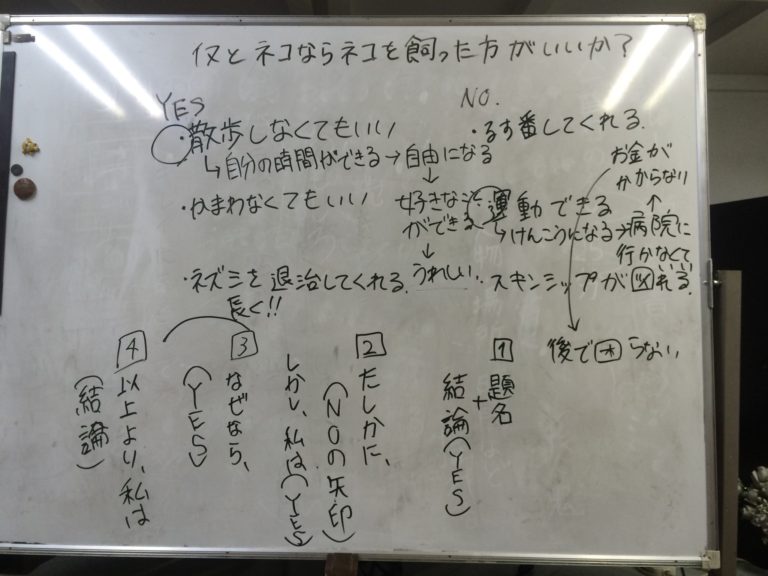 イヌとネコならネコを飼った方がいいか?
YES
・散歩しなくてもいい
↳自分の時間ができる→自由になる
↓
好きなこと
ができる
↓
うれしい
・かまわなくてもいい
・ネズミを退治してくれる
長く!!
NO.
・るす番してくれる
・運動できる
↳けんこうになる→病院に
行かなくていい
↑
お金が
かからない
↓
後で困らない
・スキンシップが図れる
1 題名
+
結論(YES)
2 たしかに、
(NOの矢印)
しかし、私は(YES)
3 なぜなら、
(YES)
4 以上より、私は
(結論)